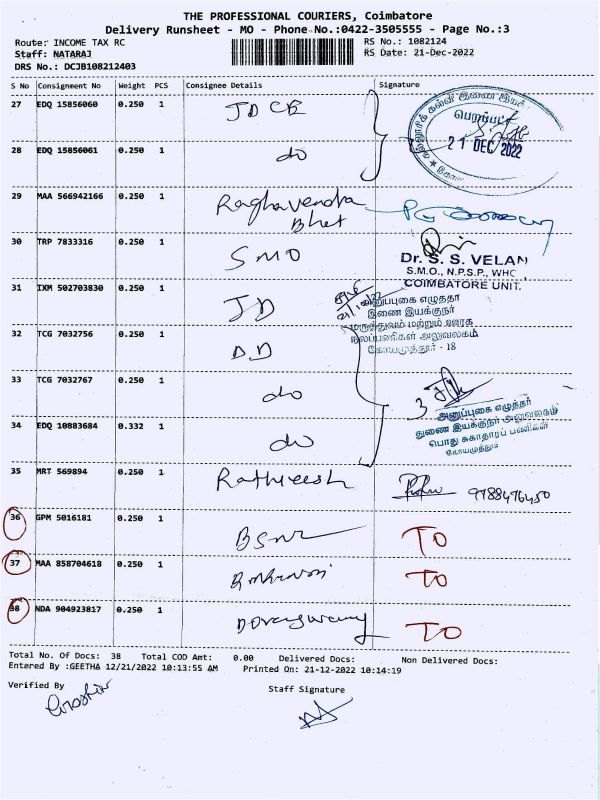 THE PROFESSIONAL COURIERS, Coimbatore
Delivery Runsheet - MO - Phone No.:0422-3505555 - Page No.:3
Route: INCOME TAX RC RS No.: 1082124
Staff: NATARAJ RS Date: 21-Dec-2022
DRS No.: DCJB108212403
S No Consignment No Weight PCS Consignee Details Signature
27 EDQ 15856060 0.250 1 JDCE
21 DEC 2022
28 EDQ 15856061 0.250 1 do
29 MAA 566942166 0.250 1 Raghavendra
Bhat
30 TRP 7833316 0.250 1 SMO
Dr. S. S. VELAN
S.M.O., N.P.S.P., WHO
COIMBATORE UNIT.
31 IXM 502703830 0.250 1 JD
அனுப்புகை எழுத்தர்
இணை இயக்குநர்
மருத்துவம் மற்றும் ஊரக
நலப்பணிகள் அலுவலகம்
கோயமுத்தூர் - 18
32 TCG 7032756 0.250 1 DD
33 TCG 7032767 0.250 1 do
3
அனுப்புகை எழுத்தர்
துணை இயக்குநர் அலுவலகம்
பொது சுகாதாரப் பணிகள்
கோயமுத்தூர்
34 EDQ 10883684 0.332 1 do
35 MRT 569894 0.250 1 Rathieesh 9788476450
36 GPM 5016181 0.250 1 BSNL TO
37 MAA 858704618 0.250 1 TO
38 NDA 904923817 0.250 1 Doraiswamy TO
Total No. Of Docs: 38 Total COD Amt: 0.00 Delivered Docs: Non Delivered Docs:
Entered By :GEETHA 12/21/2022 10:13:55 AM Printed On: 21-12-2022 10:14:19
Verified By Staff Signature